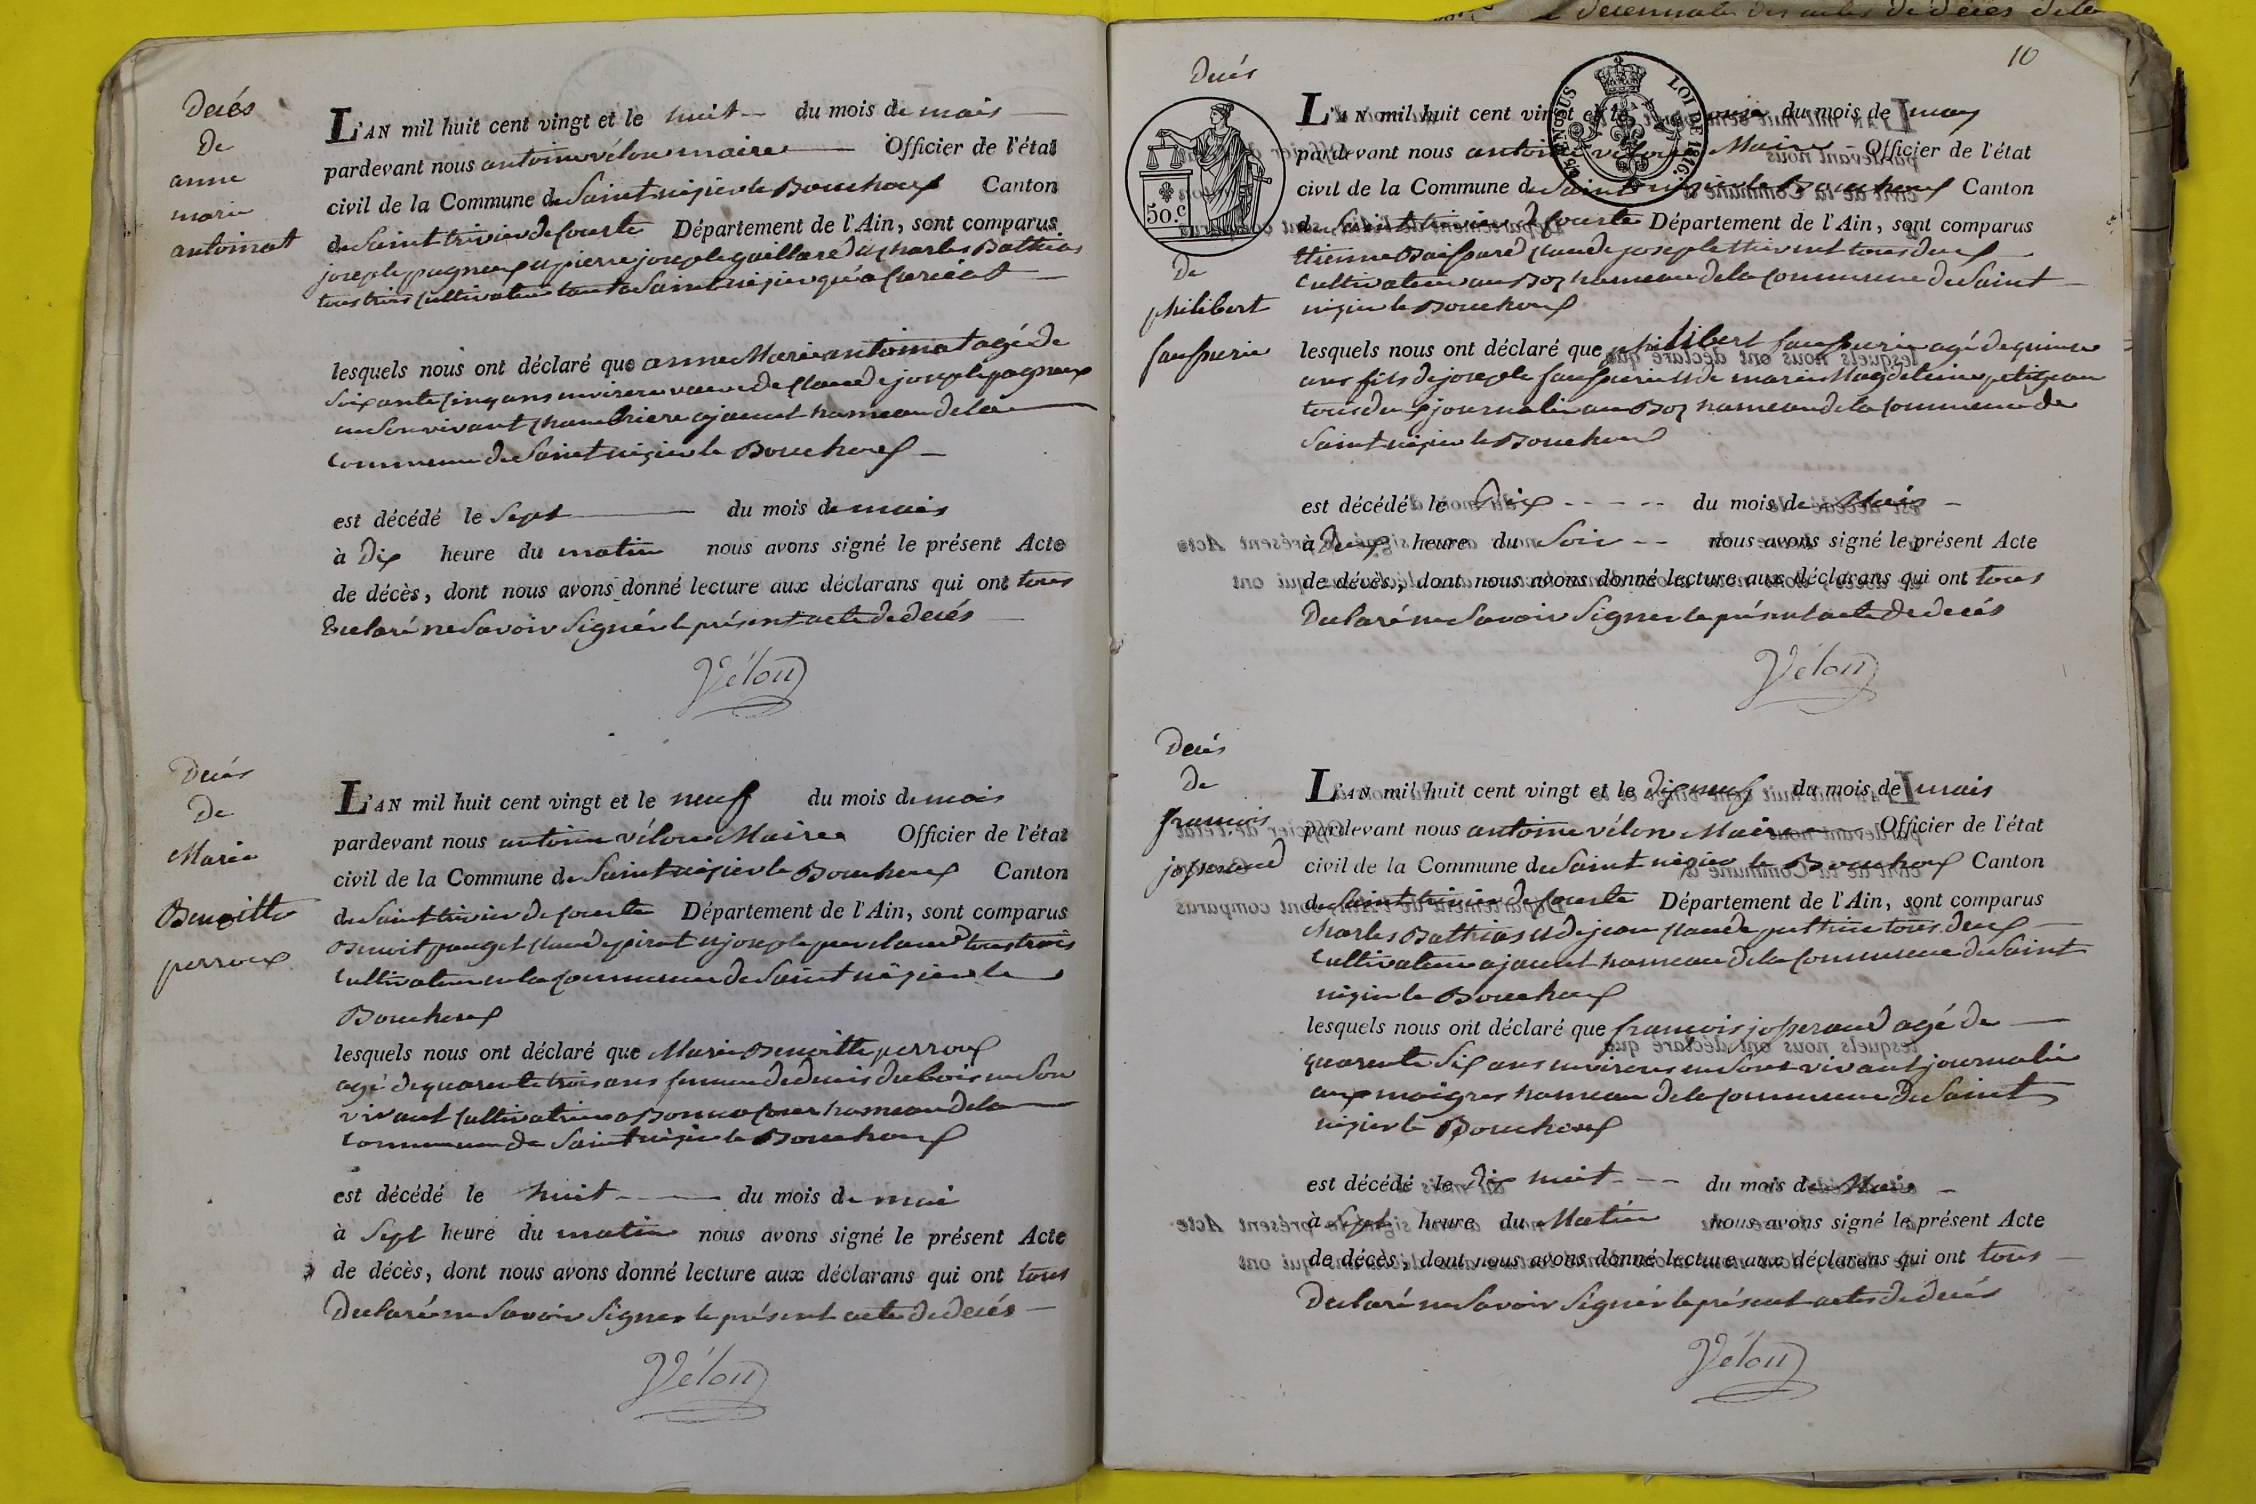 Decés
De
anne
marie
antoinat
L'AN mil huit cent vingt et le huit du mois de mais
pardevant nous antoine vélon maire Officier de l'état
civil de la Commune de Saint nizier le Bouchoux Canton
de Saint trivier de Courte Département de l'Ain, sont comparus
joseph pagneux et pierre joseph gaillard et Charles Bathias
tous trois Cultivateur tant a Saint nizier qu'a Curciat
lesquels nous ont déclaré que anne Marie antoinat agé de
Soixante Cinq ans environ veuve de Claude joseph pagneux
en Son vivant Chambriere a jaunet hameau de la
Commune de Saint nizier le Bouchoux
est décédé le Sept du mois de mais
à Dix heure du matin nous avons signé le présent Acte
de décès, dont nous avons donné lecture aux déclarans qui ont tous
Declaré ne Savoir Signér le présent acte de decés
Vélon
Decés
De
Marie
Benoitte
perroux
L'AN mil huit cent vingt et le neuf du mois de mais
pardevant nous antoine vélon Maire Officier de l'état
civil de la Commune de Saint nizier le Bouchoux Canton
de Saint trivier de Courte Département de l'Ain, sont comparus
Benoit pauget Claude pirat et joseph tous trois
Cultivateur en la Commune de Saint nizier le
Bouchoux
lesquels nous ont déclaré que Marie Benoitte perroux
agé de quarente trois ans femme de denis dubois en Son
vivant Cultivatrice a hameau de la
Commune de Saint nizier le Bouchoux
est décédé le huit du mois de mai
à Sept heure du matin nous avons signé le présent Acte
de décès, dont nous avons donné lecture aux déclarans qui ont tous
Declaré ne Savoir Signer le présent acte de decés
Vélon
10
Decés
50.c
LOI DE 1816.
De
philibert
Saussurie
L'AN mil huit cent vingt et le onze du mois de may
pardevant nous antoine vélon Maire Officier de l'état
civil de la Commune de Saint nizier le Bouchoux Canton
de Saint trivier de Courte Département de l'Ain, sont comparus
Etienne Claude joseph thevenet tous deux
Cultivateur au Boz hameau de la Commune de Saint
nizier le Bouchoux
lesquels nous ont déclaré que philibert Saussurie agé de quinze
ans fils de joseph Saussurie et de marie Magdeleine petitjean
tous deux journalier au Boz hameau de la Commune de
Saint nizier le Bouchoux
est décédé le Dix du mois de Mais
à Deux heure du Soir nous avons signé le présent Acte
de décès, dont nous avons donné lecture aux déclarans qui ont tous
Declaré ne Savoir Signer le présent acte de decés
Vélon
Decés
De
francois
josserand
L'AN mil huit cent vingt et le Dix neuf du mois de mais
pardevant nous antoine vélon Maire Officier de l'état
civil de la Commune de Saint nizier le Bouchoux Canton
de Saint trivier de Courte Département de l'Ain, sont comparus
Charles Bathias et de jean Claude tous deux
Cultivateur a jaunet hameau de la Commune de Saint
nizier le Bouchoux
lesquels nous ont déclaré que francois josserand agé de
quarente Six ans environ en Sont vivant journalié
aux maigres hameau de la Commune De Saint
nizier le Bouchoux
est décédé le dix huit du mois de Mais
à Sept heure du Matin nous avons signé le présent Acte
de décès, dont nous avons donné lecture aux déclarans qui ont tous
Declaré ne Savoir Signér le présent actes de decés
Vélon